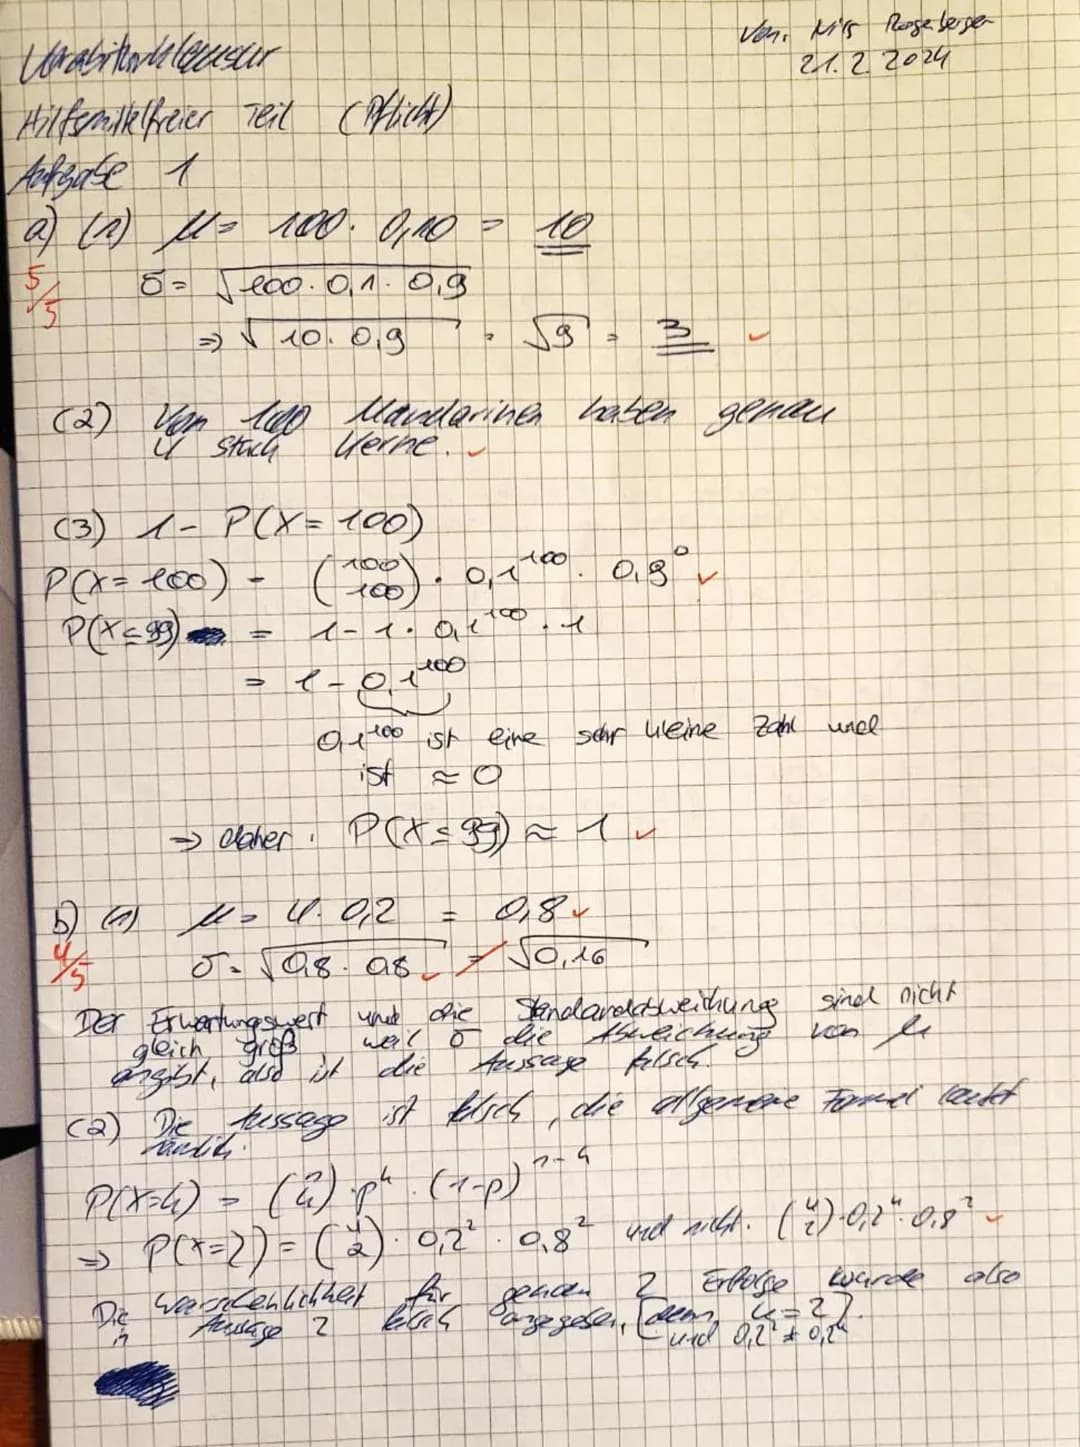 Vorabiturklausur
Von: Nils
21.2.2024
Hilfsmittelfreier Teil (Pflicht)
Aufgabe 1
a) (1) μ = 100 · 0,10 = 10
5/5
σ = √(100 · 0,1 · 0,9)
⇒ √(10 · 0,9) = √9 = 3 ✓
(2) Von 100 Mandarinen haben genau
4 Stück Kerne. ✓
(3) 1 - P(X = 100)
P(X = 100) = (100 100) · 0,1^100 · 0,9^0 ✓
P(X ≤ 99) = 1 - 1 · 0,1^100 · 1
= 1 - 0,1^100
0,1^100 ist eine sehr kleine Zahl und
ist ≈ 0
⇒ daher: P(X ≤ 99) ≈ 1 ✓
b) (1) μ = 4 · 0,2 = 0,8 ✓
4/5
σ = √(0,8 · 0,8) ✓ = √0,16
Der Erwartungswert und die Standardabweichung sind nicht
gleich groß weil σ die Abweichung von μ
angibt, also ist die Aussage falsch.
(2) Die Aussage ist falsch, die allgemeine Formel lautet
nämlich:
P(X=k) = (n k) · p^k · (1-p)^n-k
⇒ P(X=2) = (4 2) · 0,2^2 · 0,8^2 und nicht: (4 2) · 0,2^4 · 0,8^2 ✓
Die Warschenlichkeit für genau 2 Erfolge wurde also
in Aussage 2 falsch angegeben, [denn k=2].
und 0,2^2 ≠ 0,2^4